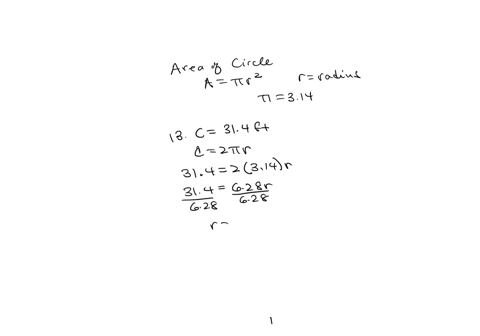 Area of Circle
A = πr² r = radius
π = 3.14
13. C = 31.4 ft
C = 2πr
31.4 = 2(3.14)r
31.4/6.28 = 6.28r/6.28
r =
1